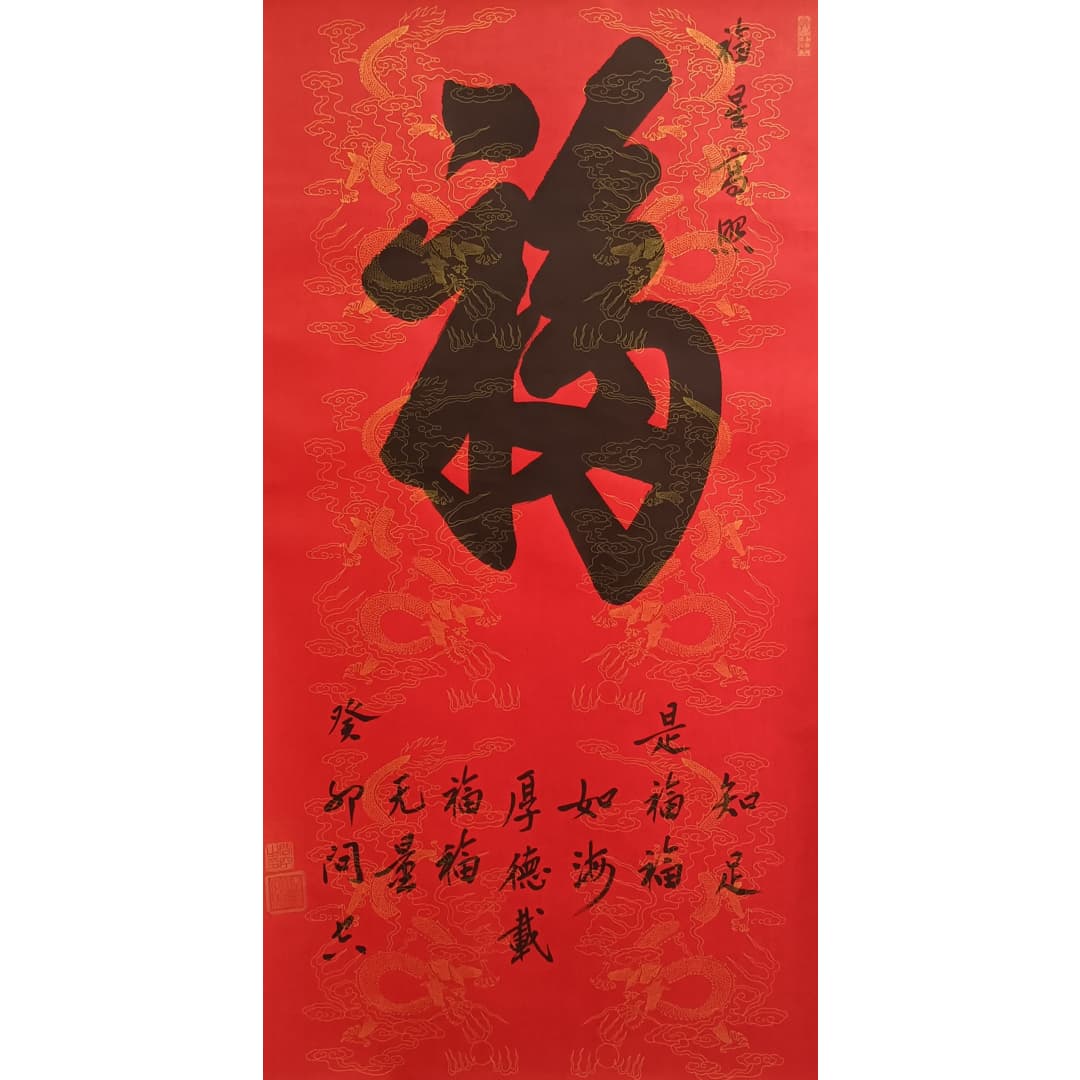 福星高照
福
知足
是福福
如海
厚德載
福福
无量
癸卯问